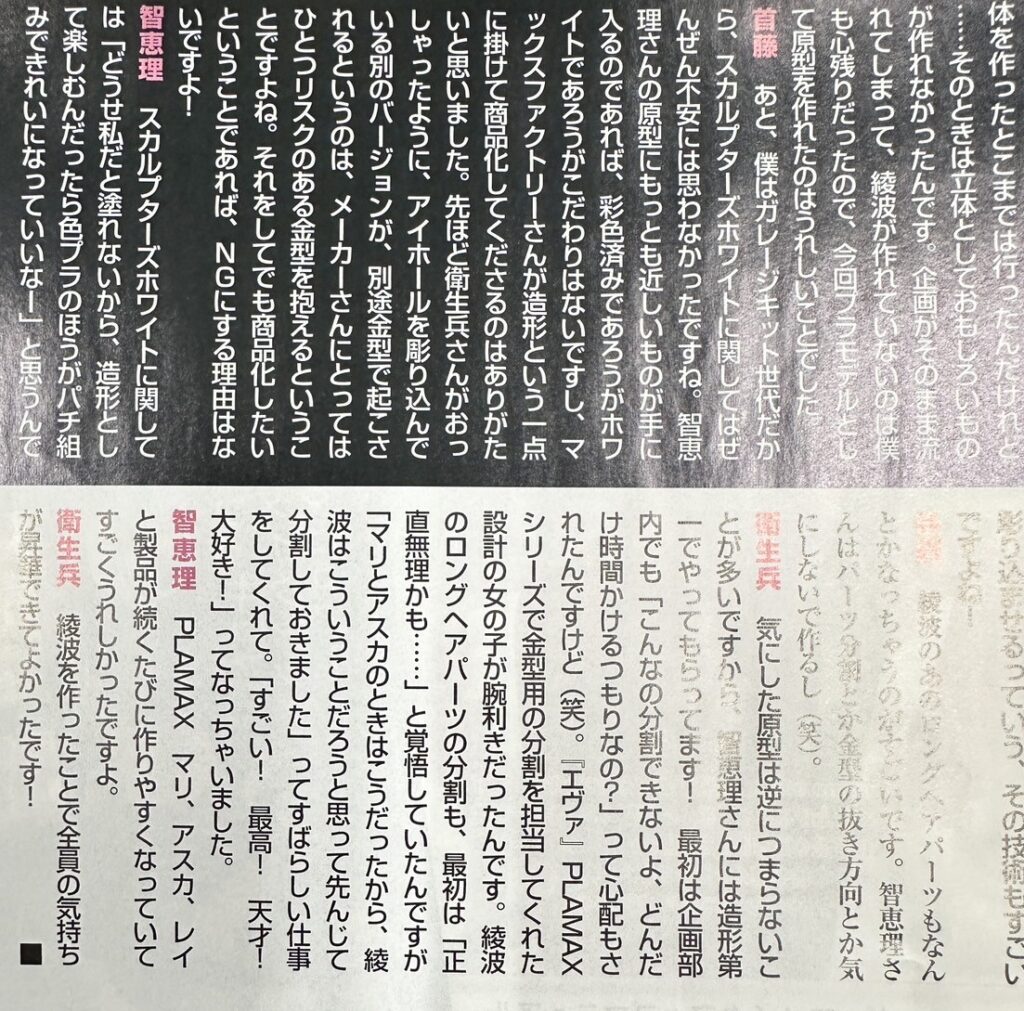 体を作ったとこまでは行ったんだけれど
……そのときは立体としておもしろいもの
が作れなかったんです。企画がそのまま流
れてしまって、綾波が作れていないのは僕
も心残りだったので、今回プラモデルとし
て原型を作れたのはうれしいことでした。
首藤　あと、僕はガレージキット世代だか
ら、スカルプターズホワイトに関してはぜ
んぜん不安には思わなかったですね。智恵
理さんの原型にもっとも近しいものが手に
入るのであれば、彩色済みであろうがホワ
イトであろうがこだわりはないですし、マ
ックスファクトリーさんが造形という一点
に掛けて商品化してくださるのはありがた
いと思いました。先ほど衛生兵さんがおっ
しゃったように、アイホールを彫り込んで
いる別のバージョンが、別途金型で起こさ
れるというのは、メーカーさんにとっては
ひとつリスクのある金型を抱えるというこ
とですよね。それをしてでも商品化したい
ということであれば、NGにする理由はな
いですよ！
智恵理　スカルプターズホワイトに関して
は「どうせ私だと塗れないから、造形とし
て楽しむんだったら色プラのほうがパチ組
みできれいになっていいなー」と思うんで
彫り込ませるっていう、その技術もすごい
ですよね
綾波のあのロングヘアパーツもなん
とかなっちゃうのがすごいです。智恵理さ
んはパーツ分割とか金型の抜き方向とか気
にしないで作るし（笑）。
衛生兵　気にした原型は逆につまらないこ
とが多いですから、智恵理さんには造形第
一でやってもらってます！　最初は企画部
内でも「こんなの分割できないよ、どんだ
け時間かけるつもりなの？」って心配もさ
れたんですけど（笑）。『エヴァ』PLAMAX
シリーズで金型用の分割を担当してくれた
設計の女の子が腕利きだったんです。綾波
のロングヘアパーツの分割も、最初は「正
直無理かも……」と覚悟していたんですが
「マリとアスカのときはこうだったから、綾
波はこういうことだろうと思って先んじて
分割しておきました」ってすばらしい仕事
をしてくれて。「すごい！　最高！　天才！
大好き！」ってなっちゃいました。
智恵理　PLAMAX　マリ、アスカ、レイ
と製品が続くたびに作りやすくなっていて
すごくうれしかったですよ。
衛生兵　綾波を作ったことで全員の気持ち
が昇華できてよかったです！　■